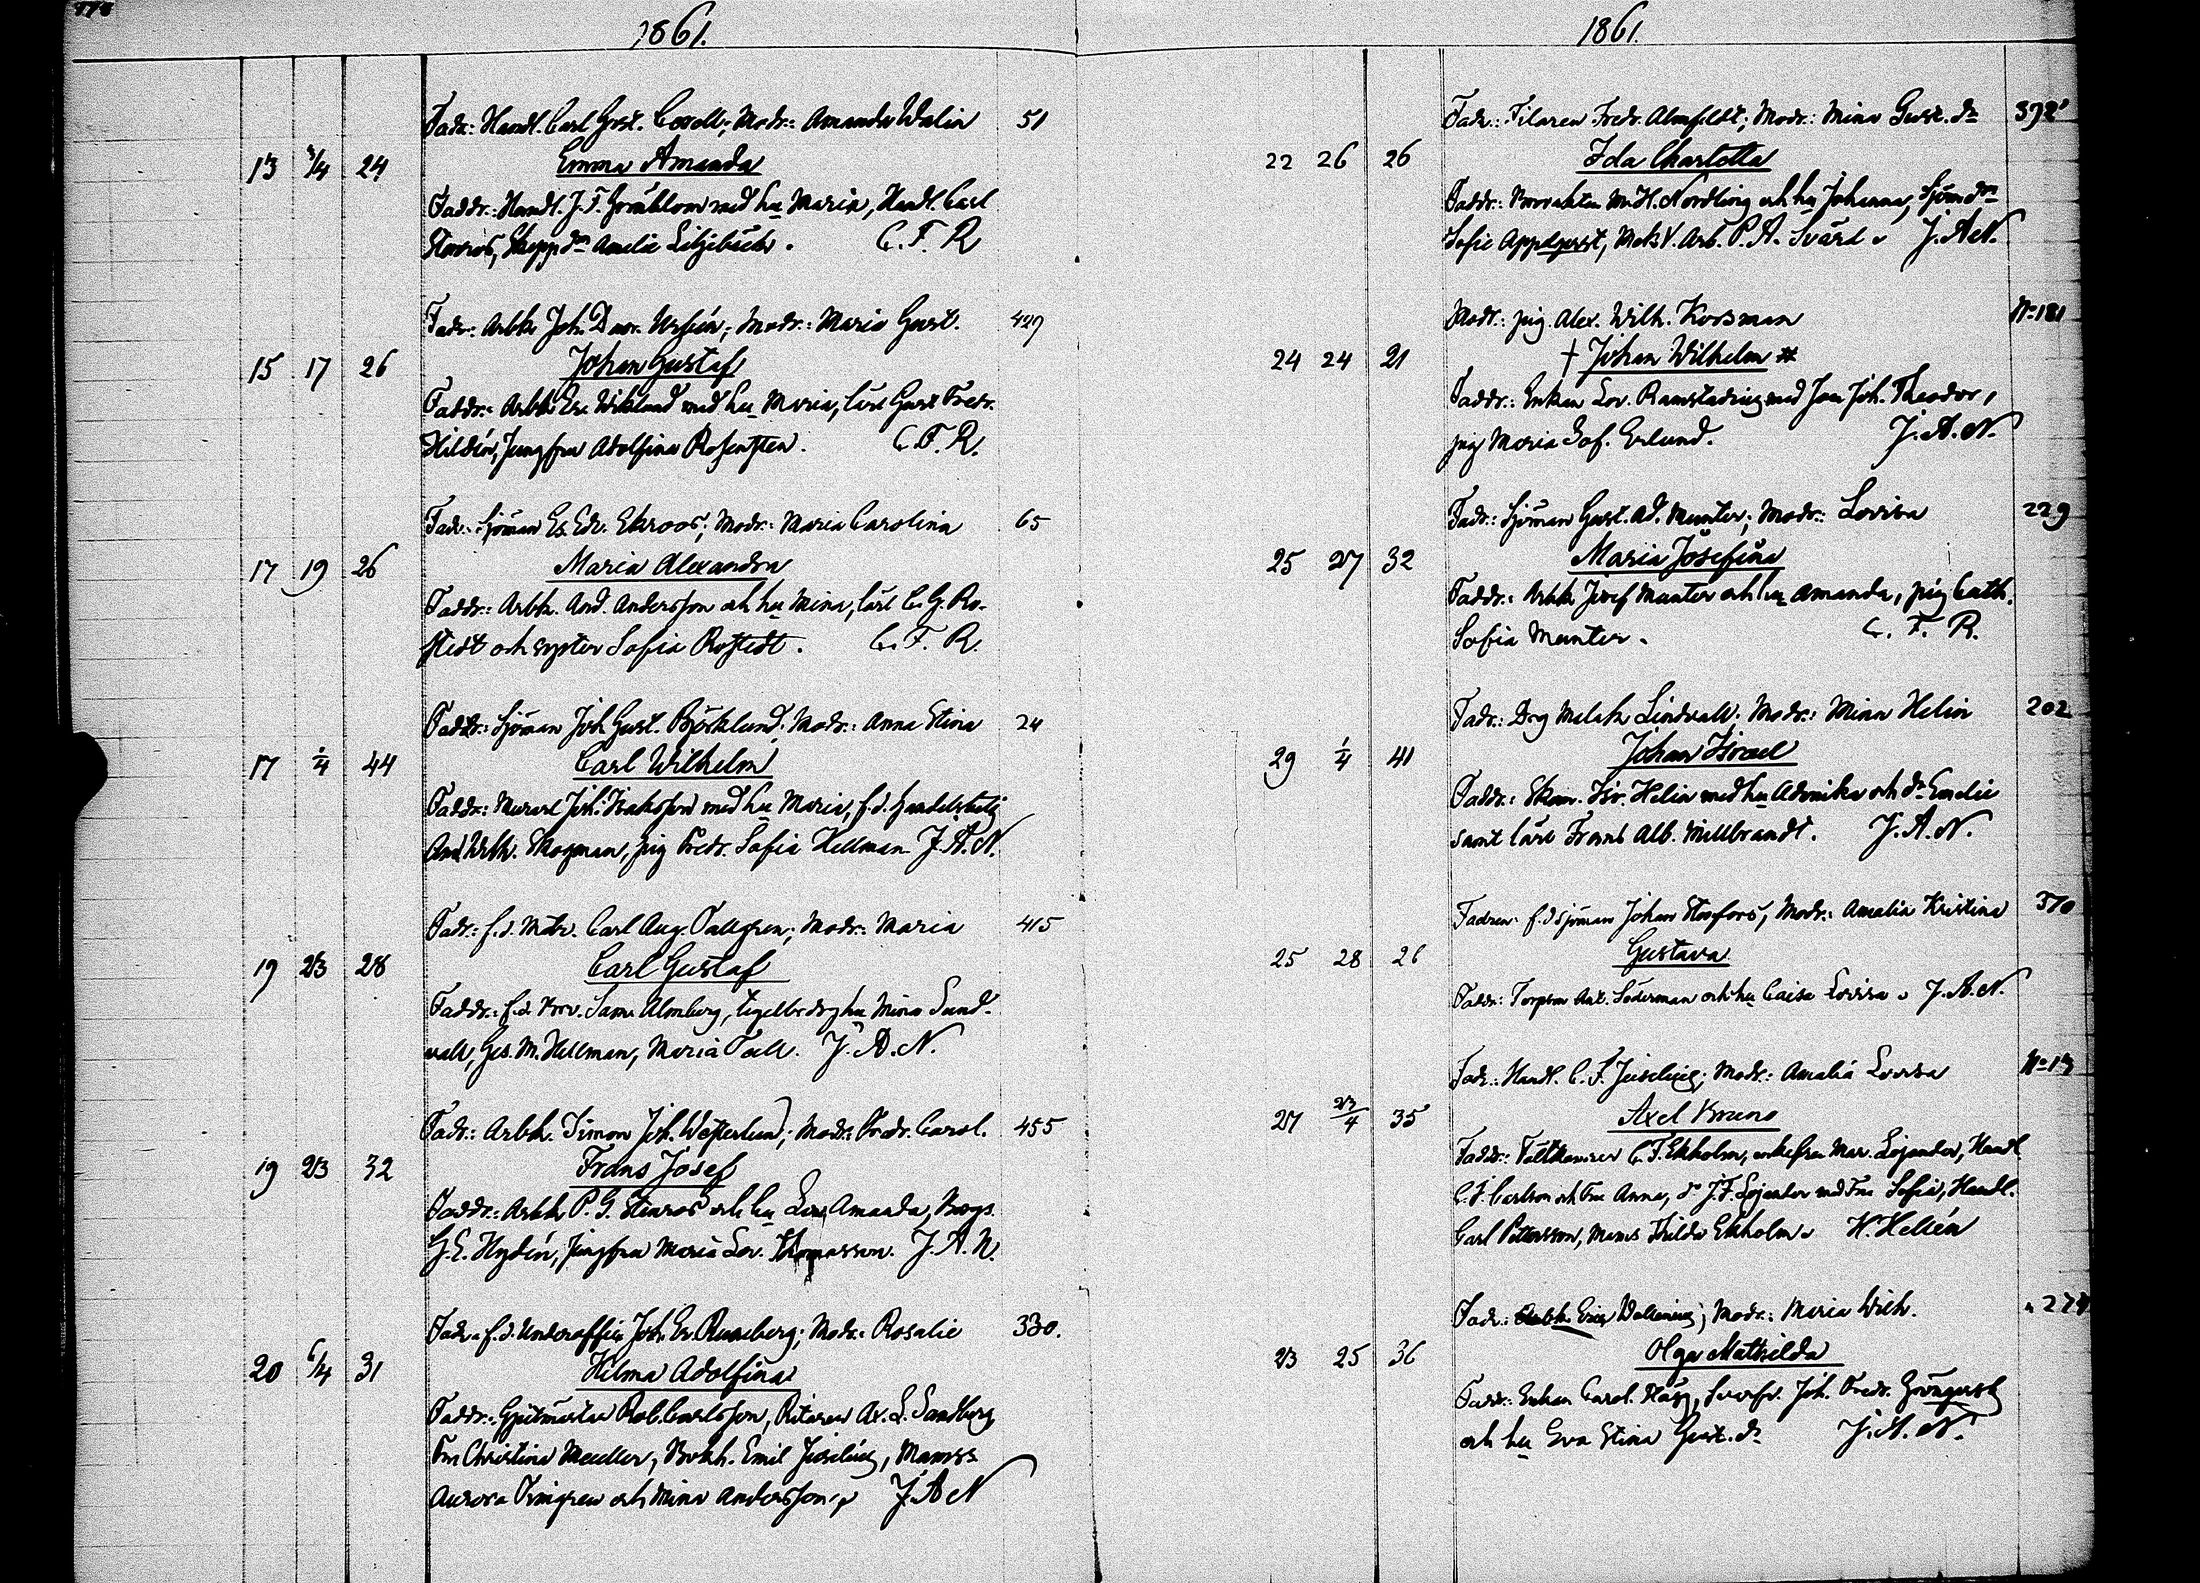 1861.
Fadr: Handl. Carl Gust. Corell; Modr: Amanda Walin 51
13 3/4 24 Emma Amanda
Faddr: Handl. J. F. Grönblom med hu Maria, Handl. Carl
Stenros, Skepp. dr Amalie Litzibüch. C. F. R
Fadr: Arbk Joh. Dav. Ursin; Modr: Maria Gust. 429
15 17 26 Johan Gustaf
Faddr: Arbk Er. Wiklund med hu Maria, lärl Gust Fredr.
Hildén, Jungfru Adolfina Rosensten. C. F. R.
Fadr: Sjöman Es. Edv. Ekroos; Modr: Maria Carolina 65
17 19 26 Maria Alexandra
Faddr: Arbk. And. Andersson och hu Mina, lärl C. G. Ro-
stedt och syster Sofia Rostedt. C. F. R.
Faddr: Sjöman Joh Gust. Björklund; Modr: Anna Stina 24
17 2/4 44 Carl Wilhelm
Faddr: Murarl Joh. Isaksson med hu Maria, f.d. Handelsbetj
And Wilh. Skogman, pig Fredr. Sofia Hellman J. A. N.
Fadr: f.d. Matr. Carl Aug. Tallgren; Modr: Maria 415
19 23 28 Carl Gustaf
Faddr: f.d. Förv. Sam. Almberg, tegelbr drg hu Mina Sund-
wall, Ges. M. Hellman, Maria Tall. J. A. N.
Fadr: Arbk. Simon Joh. Westerlund; Modr: Fredr. Carol. 455
19 23 32 Frans Josef
Faddr: Arbk P. G. Stenros och hu Lov. Amanda,
G. E. Hydén, Jungfru Maria Lov. Thomasson. J. A. N.
Fadr: f.d. Underoffic Joh. Er. Runeberg; Modr: Rosalie 330.
20 6/4 31 Hilma Adolfina
Faddr: Gjutmästar Rob. Carlsson, Ritaren Ax. L. Sandberg
Fru Christina Meuller, Bokh. Emil Juselius, Mamss
Aurora Tringren och Mina Andersson. J. A N
1861.
Fadr: Filaren Fredr. Almfeldt; Modr: Mina Gust. dr 392
22 26 26 Ida Charlotta
Faddr: M. H. Nordling och hu Johanna, Sjöm dr
Sofie Applqvist, Mek V. Arb. P. A. Svärd. J. A N.
Modr: pig. Alex. Wilh. Korsman No 181
24 24 21 † Johan Wilhelm *
Faddr: Enkan Lov. Ramstadius med Son Joh. Theodor,
pig Maria Sof. Erlund. J. A. N.
Fadr: Sjöman Gust. Ad. Munter; Modr: Lovisa 229
25 27 32 Maria Josefina
Faddr: Arbk Josef Munter och hu Amanda, pig Cath.
Sofia Munter. C. F. R.
Fadr: Drg Malak Lindvall; Modr: Mina Helin 202
29 1/4 41 Johan Israel
Faddr: Skom. Isr. Helin med hu Advnika och dr Emelie
samt lärl Frans Alb. Millbrandt. J. A. N.
Fadren: f.d sjöman Johan Storfors, Modr: Amalia Kristina 370
25 28 26 Gustava
Faddr: Torparn Ant. Söderman och hu Caisa Lovisa. J. A. N.
Fadr: Handl. C. F. Juselius; Modr: Amalia Lovisa No 13
27 23/4 35 Axel Bruno
Faddr: Fältkamrer C. F. Ekholm, enkefru Mar. Lojander, Handl
C. F. Carlson och Fru Anna, do J. F. Lojander med Fru Sofia, Handl.
Carl Pettersson, Mams Hilda Ekholm. H. Hellén
Fadr: Arbk Eric Wallenius; Modr: Maria Wilh. " 274
23 25 36 Olga Mathilda
Faddr: Enkan Carol. Hägg, Svarfv. Joh. Fredr. Grönqvist
och hu Eva Stina Gust. dr J. A. N.